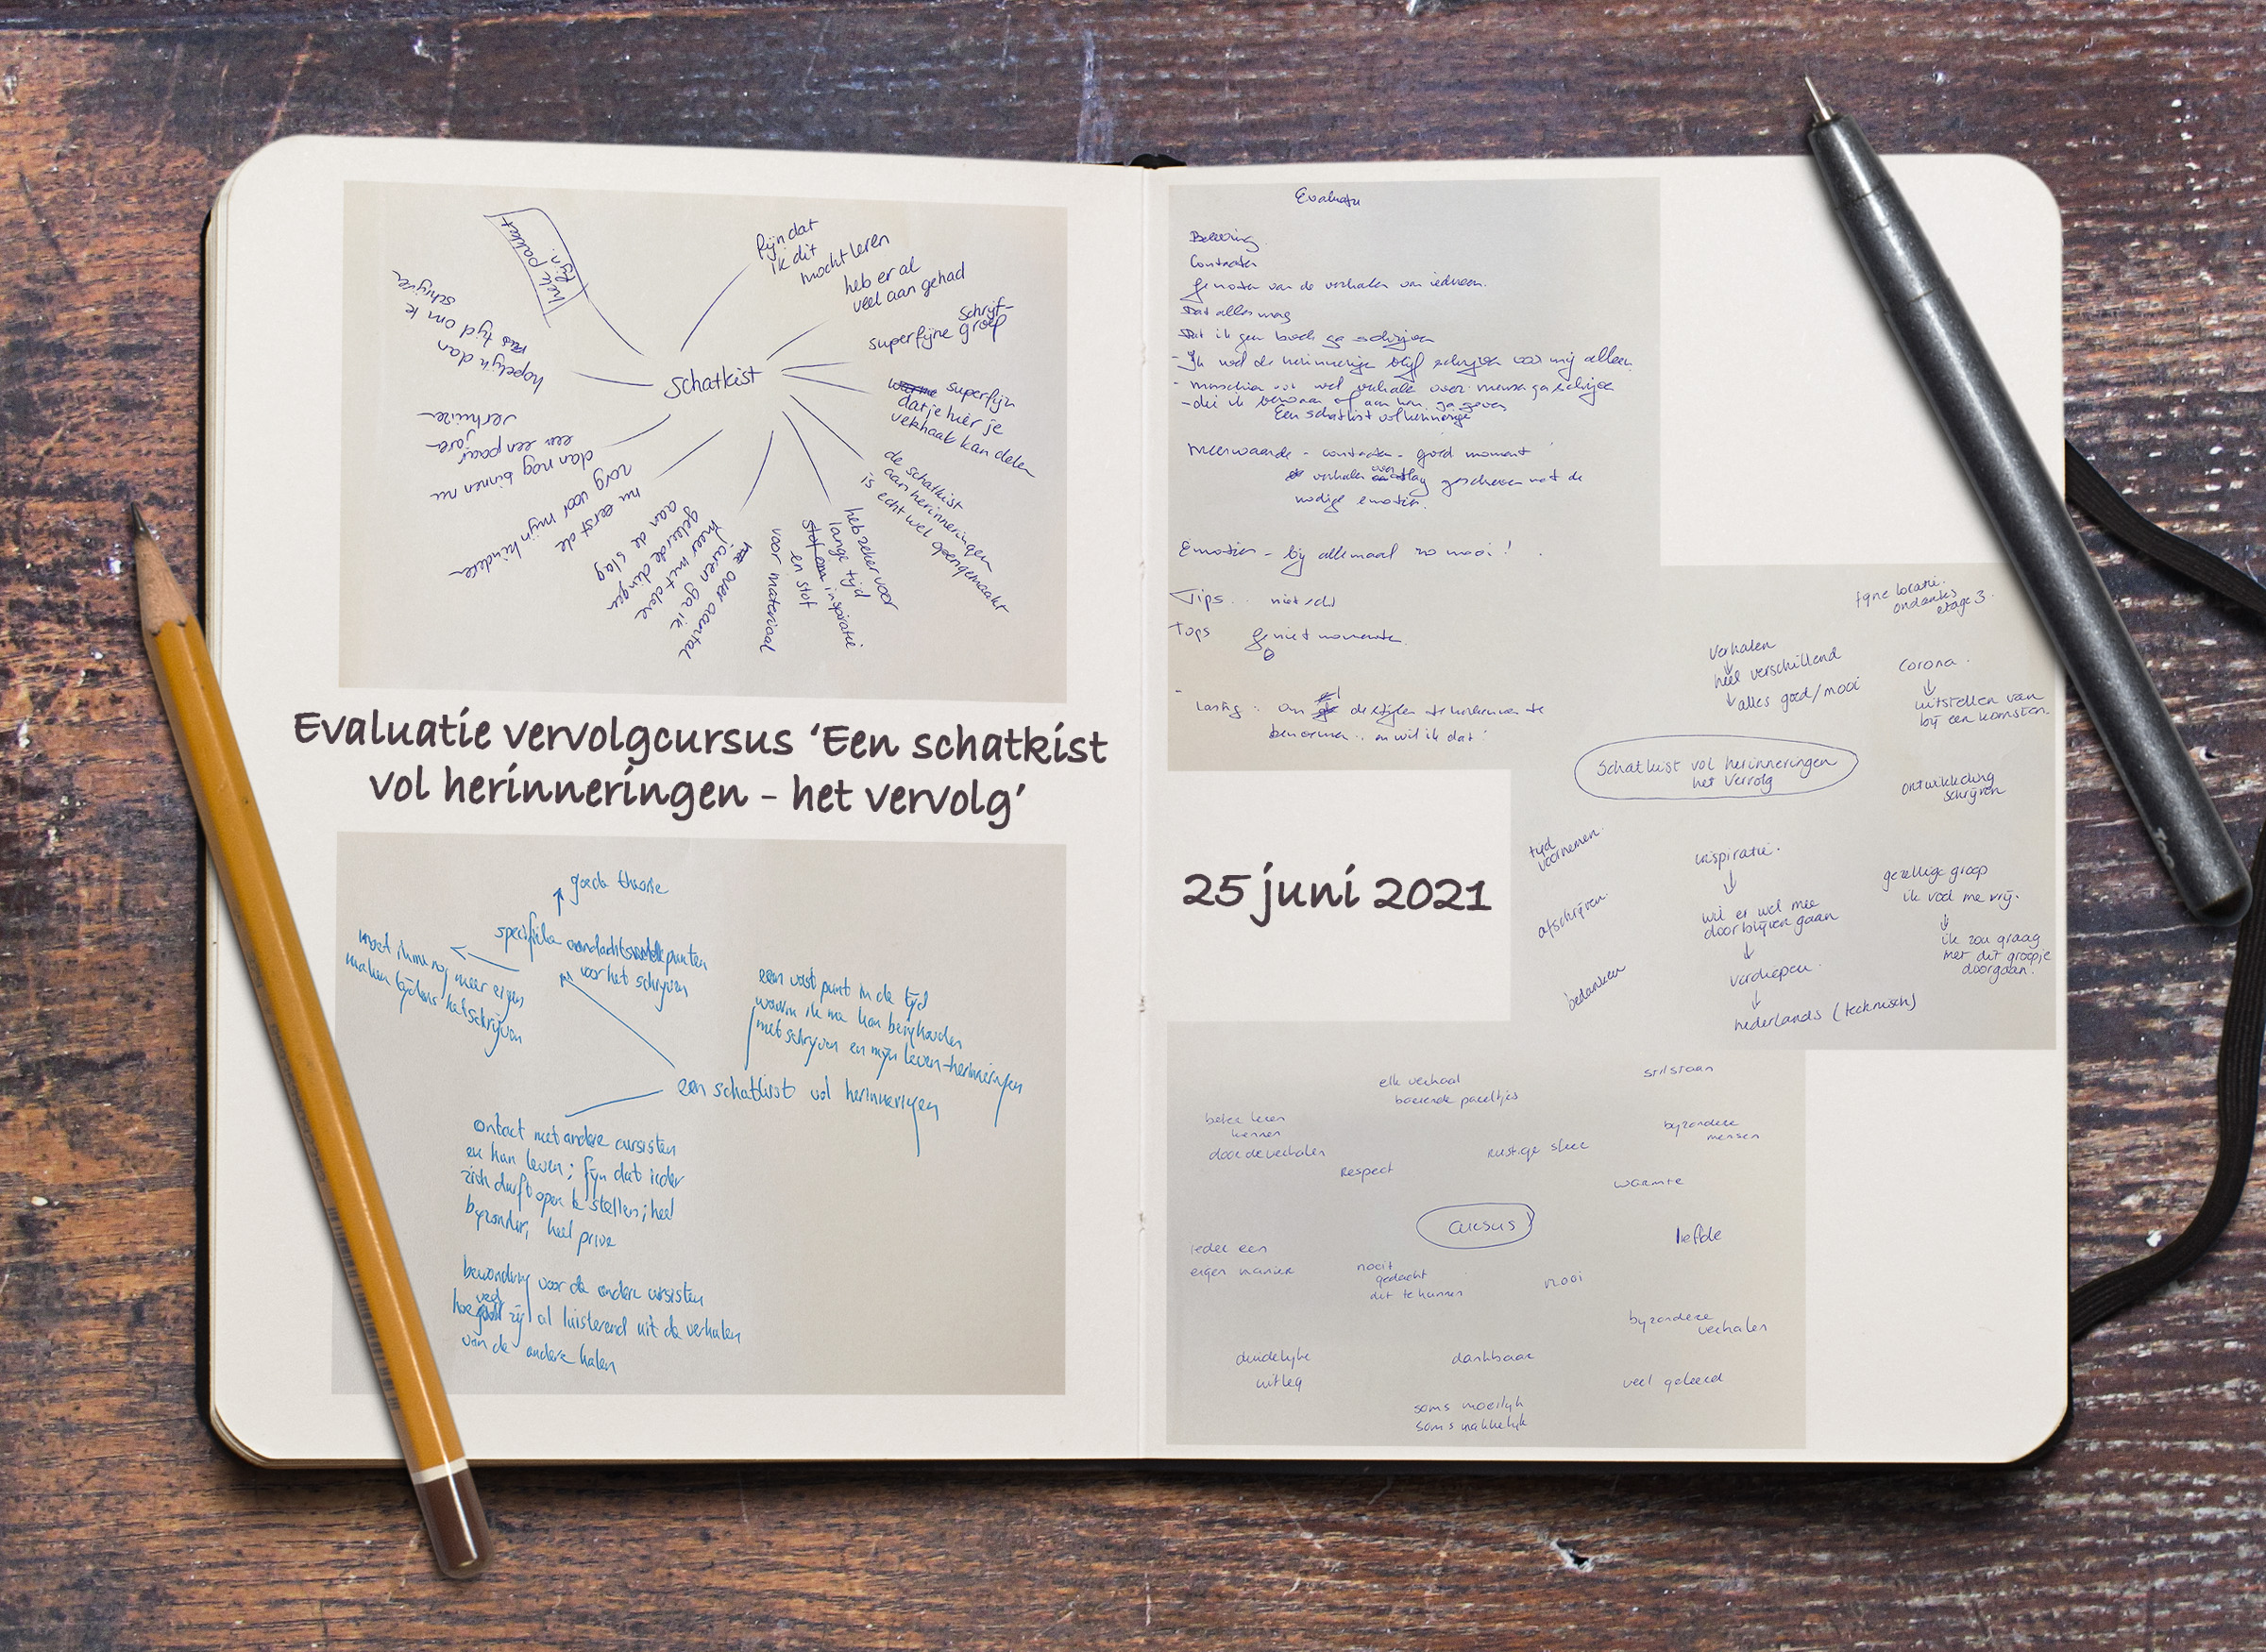 fijn dat
ik dit
mocht leren
heb er al
veel aan gehad
schrijf-
superfijne groep
superfijn
dat je hier je
verhaal kan delen
de schatkist
aan herinneringen
is echt wel opengemaakt
heb zeker voor
lange tijd
inspiratie
en stof
voor materiaal
over aantal
jaren ga ik
meer met deze
geleerde dingen
aan de slag
nu eerst de
zorg voor mijn kinderen
dan nog binnen nu
en een paar
jaren
verhuizen
hopelijk dan
tijd om te
schrijven
hele pakket
fijn.
schatkist
Evaluatie vervolgcursus ‘Een schatkist
vol herinneringen - het vervolg’
goede theorie
specifieke aandachtspunten
voor het schrijven
moet ik me nog meer eigen
maken tijdens het schrijven
een vast punt in de tijd
waarin ik me kan bezighouden
met schrijven en mijn leven-herinneringen
een schatkist vol herinneringen
contact met andere cursisten
en hun leven; fijn dat ieder
zich durft open te stellen; heel
bijzonder; heel prive
bewondering voor de andere cursisten
hoeveel zij al luisterend uit de verhalen
van de andere halen
Evaluatie
Beleving
Contacten
genoten van de verhalen van iedereen.
dat alles mag
dat ik geen boek ga schrijven
- Ik wel de herinneringen blijf schrijven voor mij alleen.
- misschien ook wel verhalen over mensen ga schrijven
- die ik bewaar of aan hen ga geven
Een schatkist vol herinneringen
Meerwaarde - contacten - goed moment
verhalen geschreven met de
nodige emotie.
Emoties - bij allemaal zo mooi!
Tips niet echt
Tops geniet momenten
Lastig: om de stijlen te herkennen te
benoemen.. en wil ik dat!
25 juni 2021
fijne locatie.
ondanks
etage 3.
verhalen
↓
heel verschillend
↓ alles goed/mooi
Corona.
↓
uitstellen van
bij een komsten.
Schatkist vol herinneringen
het vervolg
ontwikkeling
schrijven
tijd
voornemen.
afschrijven.
bedanken
inspiratie.
↓
wil er wel mee
door blijven gaan
↓
verdiepen.
↓
nederlands (technisch)
gezellige groep
ik voel me vrij.
↓
ik zou graag
met dit groepje
doorgaan.
elk verhaal
boeiende pareltjes
stilstaan
beter leren
kennen
door de verhalen
Respect
rustige sfeer
bijzondere
mensen
warmte
cursus
liefde
ieder een
eigen manier
nooit
gedacht
dit te kunnen
mooi
bijzondere
verhalen
duidelijke
uitleg
dankbaar
veel geleerd
soms moeilijk
soms makkelijk